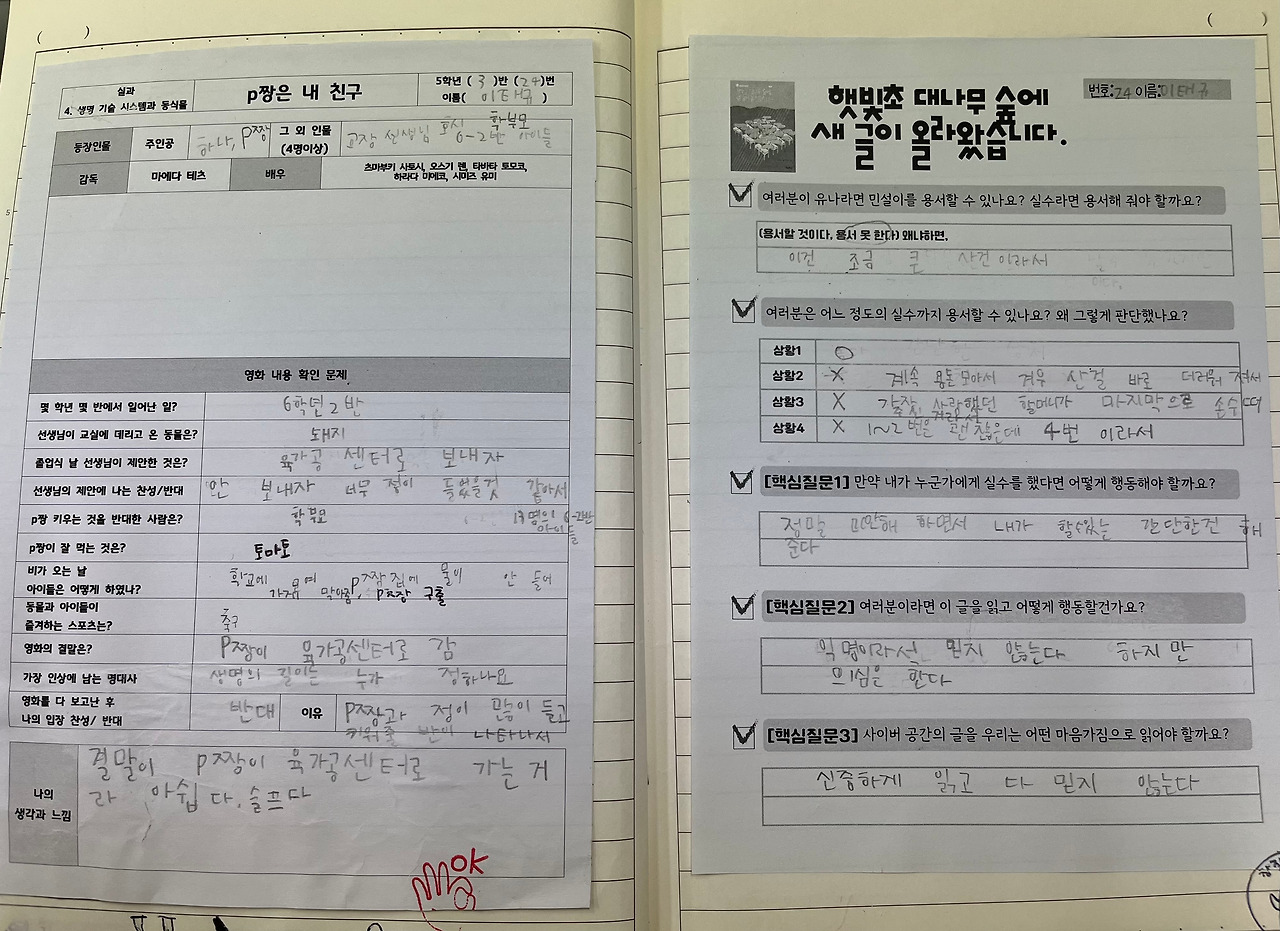 실과
4. 생명 기술 시스템과 동식물
p짱은 내 친구
5학년 ( 3 )반 (24)번
이름( 이태규 )
등장인물
주인공
하나, P짱
그 외 인물
(4명이상)
교장 선생님 호시 6-2반 학부모 아이들
감독
마에다 테츠
배우
츠마부키 사토시, 오스기 렌, 타바타 토모코,
하라다 미에코, 시미즈 유미
영화 내용 확인 문제
몇 학년 몇 반에서 일어난 일?
6학년 2반
선생님이 교실에 데리고 온 동물은?
돼지
졸업식 날 선생님이 제안한 것은?
육가공 센터로 보내자
선생님의 제안에 나는 찬성/반대
안 보내자 너무 정이 들었을것 같아서
p짱 키우는 것을 반대한 사람은?
학부모 13명의 6-2반 아이들
p짱이 잘 먹는 것은?
토마토
비가 오는 날
아이들은 어떻게 하였나?
학교에 P짱집에 물이 안 들어
가게 막아줌, P짱 구출
동물과 아이들이
즐겨하는 스포츠는?
축구
영화의 결말은?
P짱이 육가공센터로 감
가장 인상에 남는 명대사
생명의 길이는 누가 정하나요
영화를 다 보고난 후
나의 입장 찬성/ 반대
반대
이유
P짱과 정이 많이 들고
키워줄 반이 나타나서
나의
생각과 느낌
결말이 P짱이 육가공센터로 가는 거
라 아쉽다, 슬프다
OK
번호:24 이름:이태규
햇빛초 대나무 숲에
새 글이 올라왔습니다.
여러분이 유나라면 민설이를 용서할 수 있나요? 실수라면 용서해 줘야 할까요?
(용서할 것이다, 용서 못 한다) 왜냐하면,
이건 조금 큰 사건 이라서
여러분은 어느 정도의 실수까지 용서할 수 있나요? 왜 그렇게 판단했나요?
상황1 O
상황2 X 계속 용돈 모아서 겨우 산걸 바로 더러워 져서
상황3 X 사랑했던 할머니가 마지막으로 손수
상황4 X 1~2번은 괜찮은데 4번 이라서
[핵심질문1] 만약 내가 누군가에게 실수를 했다면 어떻게 행동해야 할까요?
정말 미안해 하면서 내가 할수있는 간단한건 해
준다
[핵심질문2] 여러분이라면 이 글을 읽고 어떻게 행동할건가요?
익명이라서 믿지 않는다 하지만
의심은 한다
[핵심질문3] 사이버 공간의 글을 우리는 어떤 마음가짐으로 읽어야 할까요?
신중하게 읽고 다 믿지 않는다